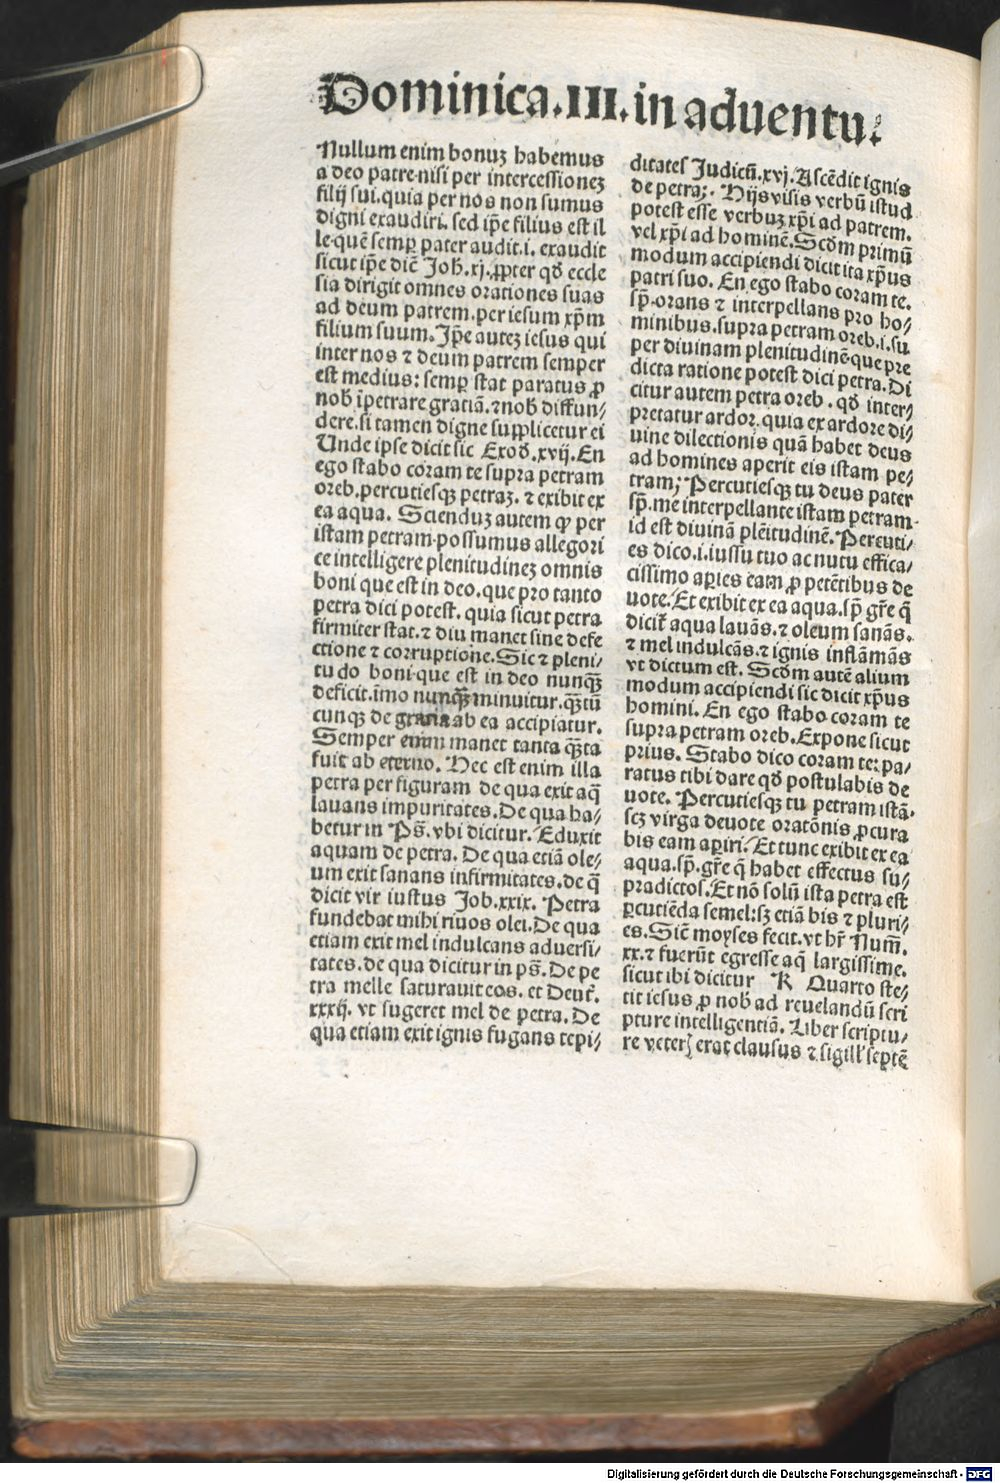 Dominica.III.in aduentu.
Nullum enim bonuʒ habemus
a deo patre·nisi per intercessioneʒ
filij sui.quia per nos non sumus
digni exaudiri. sed ip̄e filius est il
le·quē semꝑ pater audit.i. exaudit
sicut ip̄e dic̄ Joh̄.xj.ꝓpter qd̄ eccle
sia dirigit omnes orationes suas
ad deum patrem.per iesum xp̄m
filium suum. Ip̄e auteʒ iesus qui
inter nos ⁊ deum patrem semper
est medius: semꝑ stat paratus ꝓ
nob̄ īpetrare gratiā.⁊nob̄ diffun⸗
dere.si tamen digne supplicetur ei
Unde ipse dicit sic Exod̄.xvij. En
ego stabo coram te supra petram
oreb.percutiesqʒ petraʒ. ⁊ exibit ex
ea aqua. Scienduʒ autem ꝙ per
istam petram·possumus allegori
ce intelligere plenitudineʒ omnis
boni que est in deo.que pro tanto
petra dici potest. quia sicut petra
firmiter stat.⁊ diu manet sine defe
ctione ⁊ corruptione.Sic ⁊ pleni⸗
tudo boni·que est in deo nunqʒ
deficit.īmo nunqʒ minuitur.qʒtū
cunqʒ de gratia ab ea accipiatur.
Semper enim manet tanta qʒta
fuit ab eterno. Hec est enim illa
petra per figuram de qua exit aq̄
lauans impuritates.De qua ha⸗
betur in Ps̄. vbi dicitur. Eduxit
aquam de petra. De qua etiā ole⸗
um exit sanans infirmitates.de q̄
dicit vir iustus Job.xxix. Petra
fundebat mihi riuos olei.De qua
etiam exit mel indulcans aduersi⸗
tates.de qua dicitur in ps̄.De pe
tra melle saturauit eos. et Deut̄.
xxxij. vt sugeret mel de petra. De
qua etiam exit ignis fugans tepi⸗
ditates Judicū.xvj.Ascēdit ignis
de petra;. Hijs visis verbū istud
potest esse verbuʒ xp̄i ad patrem.
vel xp̄i ad hominē.Scd̄m primū
modum accipiendi dicit ita xp̄us
patri suo. En ego stabo coram te.
sp̄·orans ⁊ interpellans pro ho⸗
minibus.supra petram oreb.i.su
per diuinam plenitudinē·que pre
dicta ratione potest dici petra.Di
citur autem petra oreb . qd̄ inter⸗
pretatur ardor.quia ex ardore di⸗
uine dilectionis quā habet deus
ad homines aperit eis istam pe⸗
tram; Percutiesqʒ tu deus pater
sp̄.me interpellante istam petram·
id est diuinā plēitudinē. Percuti⸗
es dico.i.iussu tuo ac nutu effica⸗
cissimo aꝑies eam ꝓ petētibus de
uote. Et exibit ex ea aqua.sp̄ gr̄e q̄
dicit̄ aqua lauās.⁊ oleum sanās.
⁊ mel indulcās.⁊ ignis inflāmās
vt dictum est. Scd̄m autē alium
modum accipiendi sic dicit xp̄us
homini. En ego stabo coram te
supra petram oreb.Expone sicut
prius. Stabo dico coram te: pa⸗
ratus tibi dare qd̄ postulabis de
uote. Percutiesqʒ tu petram istā·
scʒ virga deuote oratōnis ꝓcura
bis eam aꝑiri. Et tunc exibit ex ea
aqua.sp̄.gr̄e q̄ habet effectus su⸗
pradictos.Et nō solū ista petra est
ꝑcutiēda semel:sʒ etiā bis ⁊ pluri⸗
es.Sic̄ moyses fecit.vt hr̄ Num̄.
xx.⁊ fuerūt egresse aq̄ largissime.
sicut ibi dicitur K Quarto ste⸗
tit iesus ꝓ nob̄ ad reuelandū scri
pture intelligentiā. Liber scriptu⸗
re veteꝝ erat clausus ⁊ sigill̄ septē
Digitalisierung gefördert durch die Deutsche Forschungsgemeinschaft - DFG